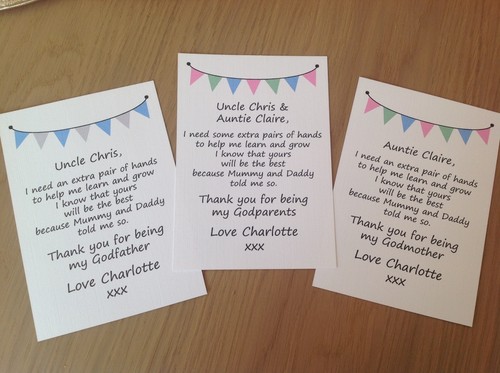 Uncle Chris,
I need an extra pair of hands
to help me learn and grow
I know that yours
will be the best
because Mummy and Daddy
told me so.
Thank you for being
my Godfather
Love Charlotte
xxx
Uncle Chris &
Auntie Claire,
I need some extra pairs of hands
to help me learn and grow
I know that yours
will be the best
because Mummy and Daddy
told me so.
Thank you for being
my Godparents
Love Charlotte
xxx
Auntie Claire,
I need an extra pair of hands
to help me learn and grow
I know that yours
will be the best
because Mummy and Daddy
told me so.
Thank you for being
my Godmother
Love Charlotte
xxx